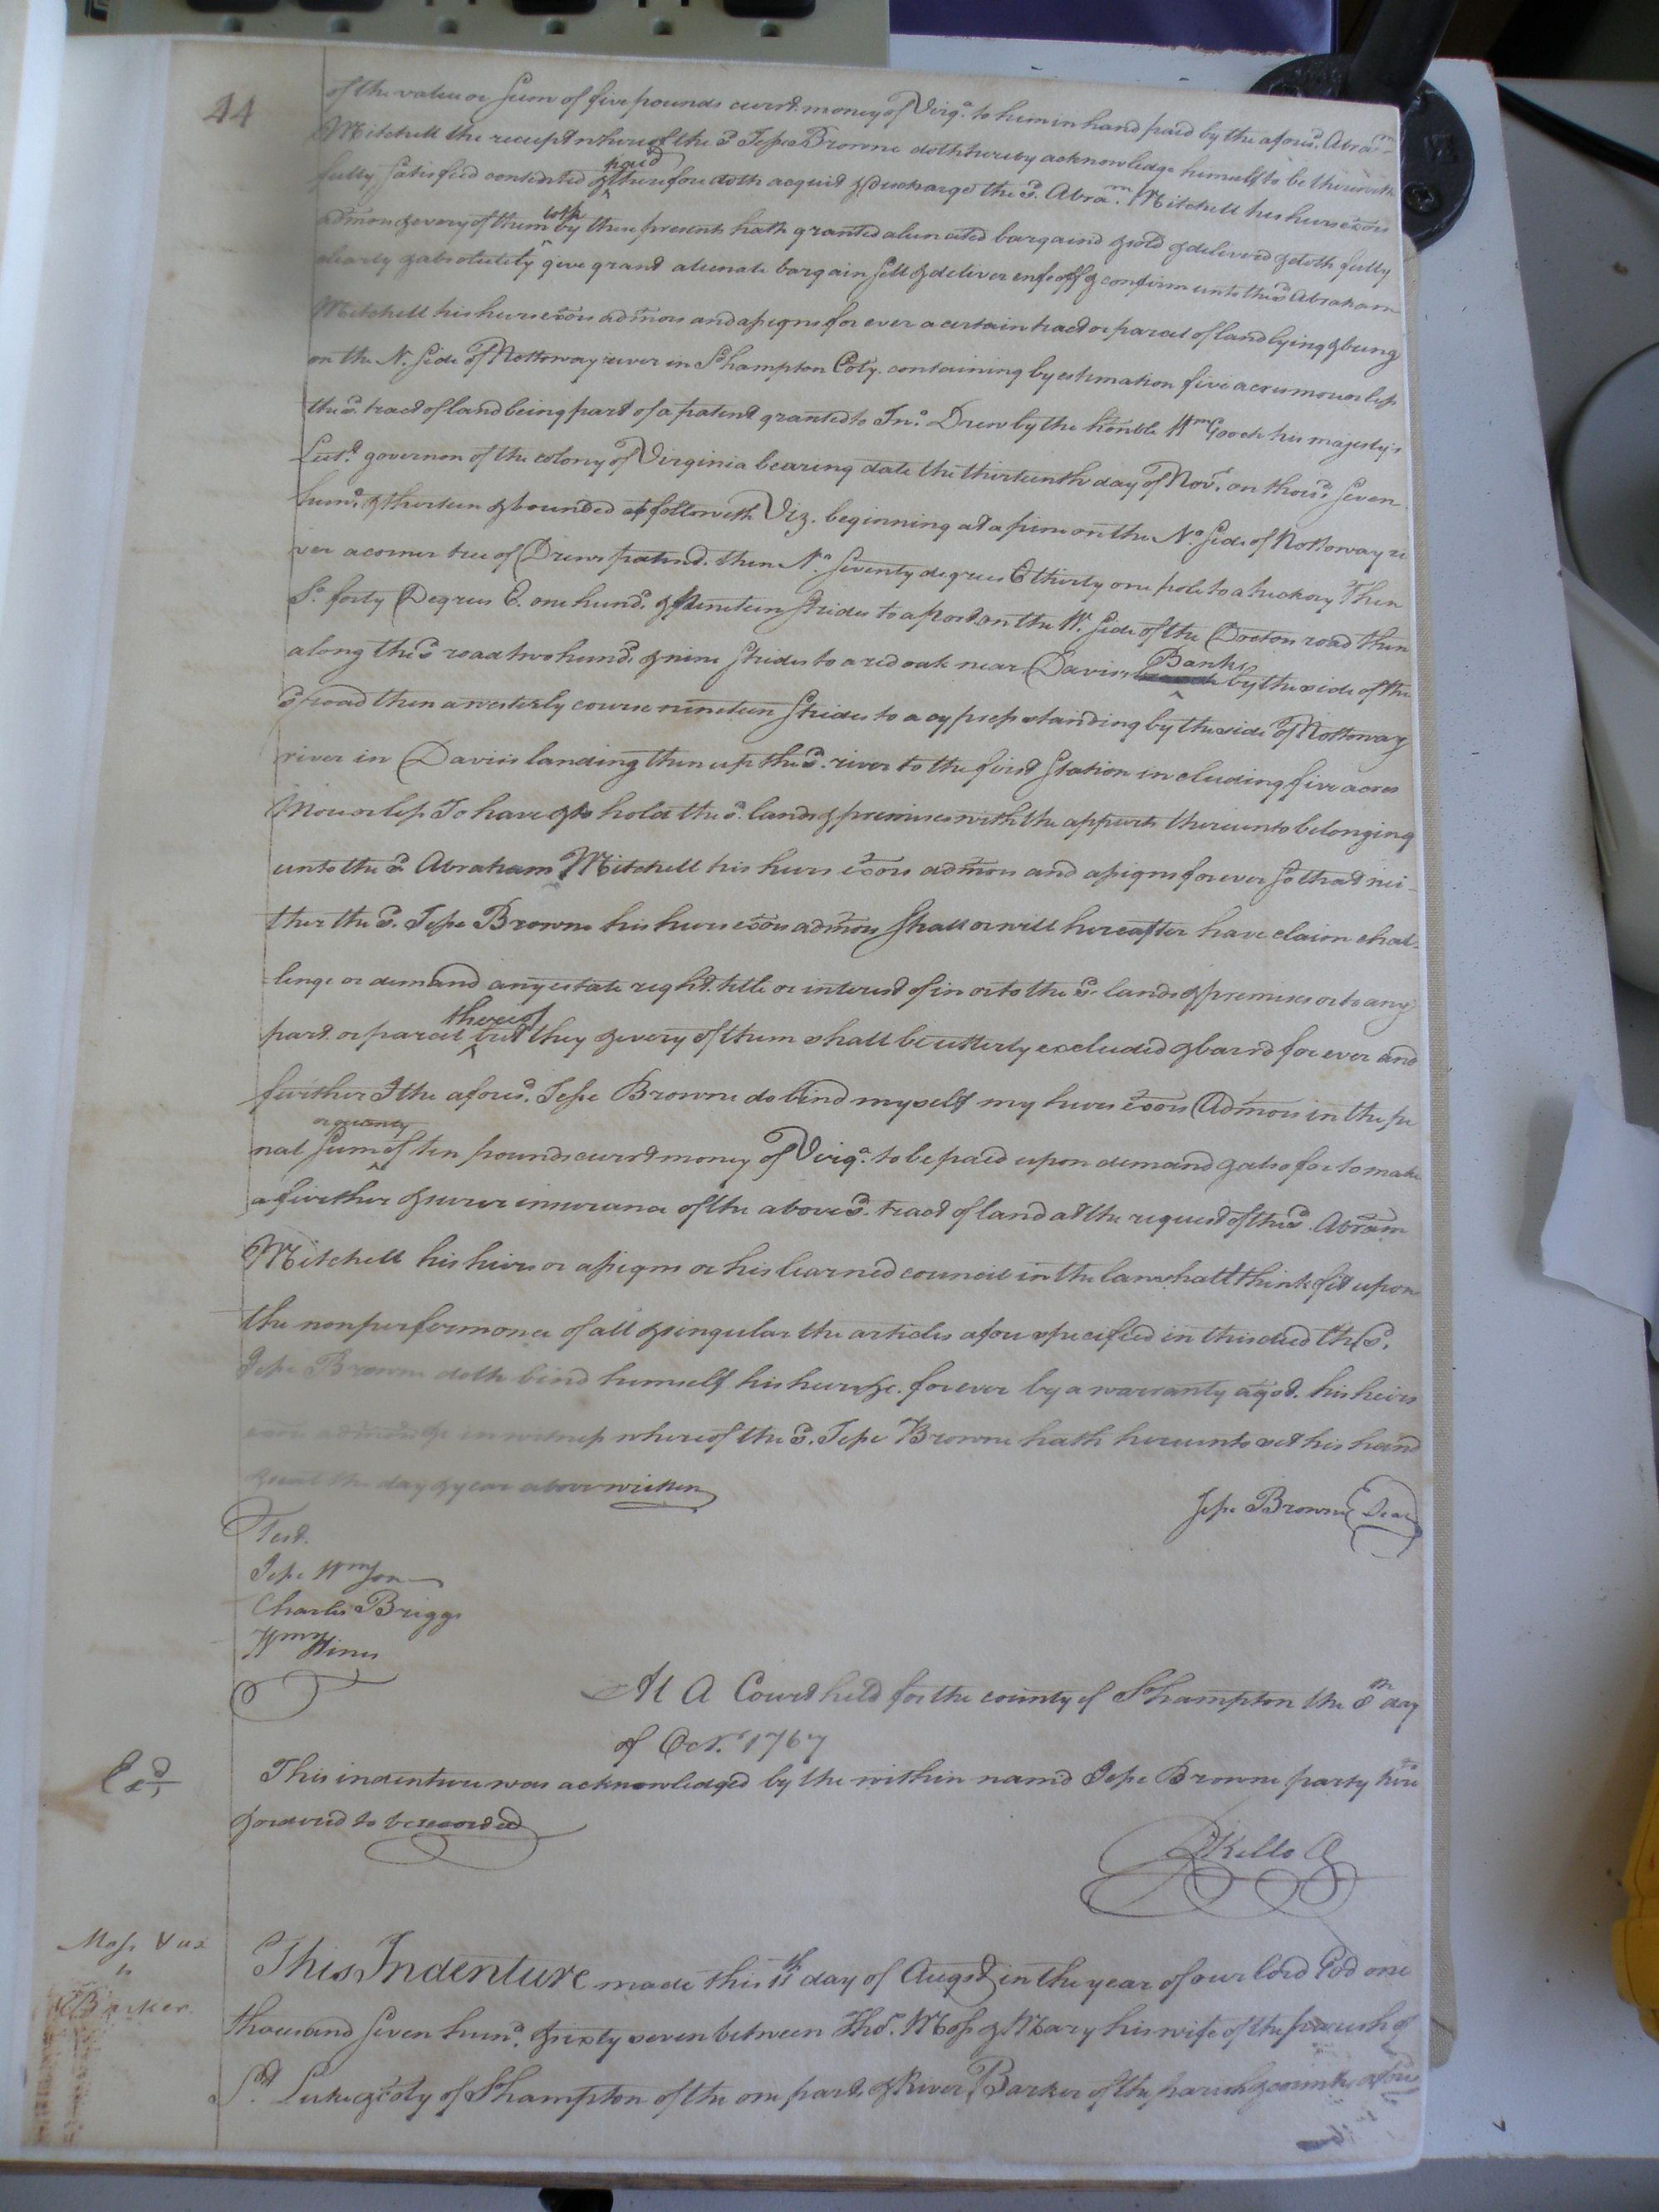 44
of the value or Sum of five pounds curr.t money of Virg.a to him in hand paid by the afores.d Abra.m
Mitchell the receipt whereof the s.d Jesse Browne doth hereby acknowledge himself to be therewith
fully satisfied contented & paid therefore doth acquit & discharge the s.d Abra.m Mitchell his heirs exors
admors & every of them by these presents hath granted alienated bargaind & sold & deliverd & doth fully
clearly & absolutely give grant alienate bargain sell & deliver enfeoff & confirm unto the s.d Abraham
Mitchell his heirs exors admors and assigns for ever a certain tract or parcel of land lying & being
on the N. Side of Nottoway river in S.hampton Coty. containing by estimation five acres more or less
the s.d tract of land being part of a patent granted to Jn.o Drew by the honble W.m Gooch his majesty's
Lieut.t governor of the colony of Virginia bearing date the thirteenth day of Nov.r on thous.d Seven
hun.d & thirteen & bounded as followeth Viz. beginning at a pine on the N.o Side of Nottoway ri
ver a corner tree of Drews patend. then N.o Seventy degrees E thirty one pole to a hickory Then
S.o forty Degrees E. one hund.d & Nineteen Strides to a post on the W. Side of the Doctors road then
along the s.d road two hund.d & nine Strides to a red oak near Daviss Banks by the side of the
s.d road then a westerly course nineteen Strides to a cypress standing by the side of Nottoway
river in Daviss landing then up the s.d river to the first Station including five acres
More or less To have & to hold the s.d land & premises with the appurts thereunto belonging
unto the s.d Abraham Mitchell his heirs exors admors and assigns for ever so that nei-
ther the s.d Jesse Browne his heirs exors admors shall or will hereafter have claim chal-
lenge or demand any estate right title or interest of in or to the s.d land & premises or to any
part or parcel thereof but they & every of them shall be utterly excluded & bard for ever and
further I the afores.d Jesse Browne do bind myself my heirs exors Admors in the pe
nal Sum of ten pounds currt money of Virg.a to be paid upon demand & also for to make
a further & surer insurance of the above s.d tract of land at the request of the s.d Abram
Mitchell his heirs or assigns or his learned council in the law shall think fit upon
the nonperformance of all & singular the articles afore specified in this deed the s.d
Jesse Browne doth bind himself his heirs &c. forever by a warranty ag.st his heirs
exors admors &c in witness whereof the s.d Jesse Browne hath hereunto set his hand
& seal the day & year above written
Jesse Browne Seal
Test.
Jesse Wmson
Charles Briggs
Wm Hines
At A Court held for the county of S.hampton the 8th day
of Oct.r 1767
Ex.d
This indenture was acknowledged by the within namd Jesse Browne party hereto
& ordered to be recorded
R Kello C
Moss & ux
to
Barker
This Indenture made this 11th day of Augst in the year of our lord God one
thousand Seven hun.d & sixty seven between Tho.s Moss & Mary his wife of the parish of
S.t Luke & coty of S.hampton of the one part & River Barker of the parish & county afores